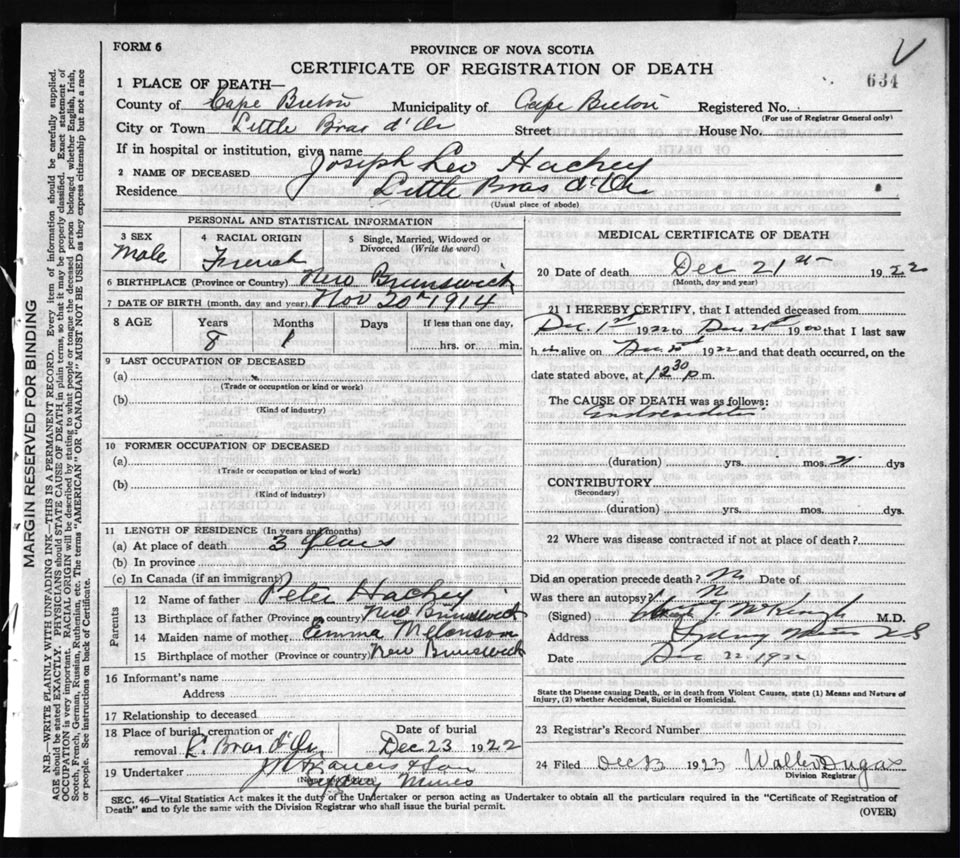 FORM 6
PROVINCE OF NOVA SCOTIA
CERTIFICATE OF REGISTRATION OF DEATH
634
1 PLACE OF DEATH—
County of Cape Breton Municipality of Cape Breton Registered No.
(For use of Registrar General only)
City or Town Little Bras d'Or Street House No.
If in hospital or institution, give name
2 NAME OF DECEASED Joseph Leo Hachey
Residence Little Bras d'Or
(Usual place of abode)
PERSONAL AND STATISTICAL INFORMATION
3 SEX
Male
4 RACIAL ORIGIN
French
5 Single, Married, Widowed or Divorced (Write the word)
6 BIRTHPLACE (Province or Country) New Brunswick
7 DATE OF BIRTH (month, day and year) Nov 20th 1914
8 AGE Years Months Days If less than one day,
8 1 hrs. or min.
9 LAST OCCUPATION OF DECEASED
(a)
(Trade or occupation or kind or work)
(b)
(Kind of industry)
10 FORMER OCCUPATION OF DECEASED
(a)
(Trade or occupation or kind of work)
(b)
(Kind of industry)
11 LENGTH OF RESIDENCE (In years and months)
(a) At place of death 3 years
(b) In province
(c) In Canada (if an immigrant)
Parents
12 Name of father Peter Hachey
13 Birthplace of father (Province or country) New Brunswick
14 Maiden name of mother Emma Melonson
15 Birthplace of mother (Province or country) New Brunswick
16 Informant's name
Address
17 Relationship to deceased
18 Place of burial, cremation or removal L. Bras d'Or
Date of burial
Dec 23 1922
19 Undertaker J. M Francis & Son
Sydney Mines
MEDICAL CERTIFICATE OF DEATH
20 Date of death Dec 21st 1922
(Month, day and year)
21 I HEREBY CERTIFY, that I attended deceased from
Dec 1st 1922 to Dec 19 that I last saw
h alive on Dec 1922 and that death occurred, on the
date stated above, at 12 30 p m.
The CAUSE OF DEATH was as follows:
Endocarditis
(duration) yrs. mos. 21 dys
CONTRIBUTORY
(Secondary)
(duration) yrs. mos. dys.
22 Where was disease contracted if not at place of death?
Did an operation precede death? No Date of
Was there an autopsy? N
(Signed) M.D.
Address Sydney Mines NS
Date Dec 22 1922
State the Disease causing Death, or in death from Violent Causes, state (1) Means and Nature of
Injury, (2) whether Accidental, Suicidal or Homicidal.
23 Registrar's Record Number
24 Filed Dec 23 1923 Walter Dugas
Division Registrar
SEC. 46—Vital Statistics Act makes it the duty of the Undertaker or person acting as Undertaker to obtain all the particulars required in the "Certificate of Registration of
Death" and to fyle the same with the Division Registrar who shall issue the burial permit.
(OVER)
MARGIN RESERVED FOR BINDING
N.B.—WRITE PLAINLY WITH UNFADING INK—THIS IS A PERMANENT RECORD. Every item of information should be carefully supplied.
AGE should be stated EXACTLY. PHYSICIANS should STATE CAUSE OF DEATH in plain terms, so that it may be properly classified. Exact statement of
OCCUPATION is very important. RACIAL ORIGIN will be described by stating to what people or tongue the deceased person belonged whether English, Irish,
Scotch, French, German, Russian, Ruthenian, etc. The terms "AMERICAN" OR "CANADIAN" MUST NOT BE USED as they express citizenship but not a race
or people. See instructions on back of Certificate.